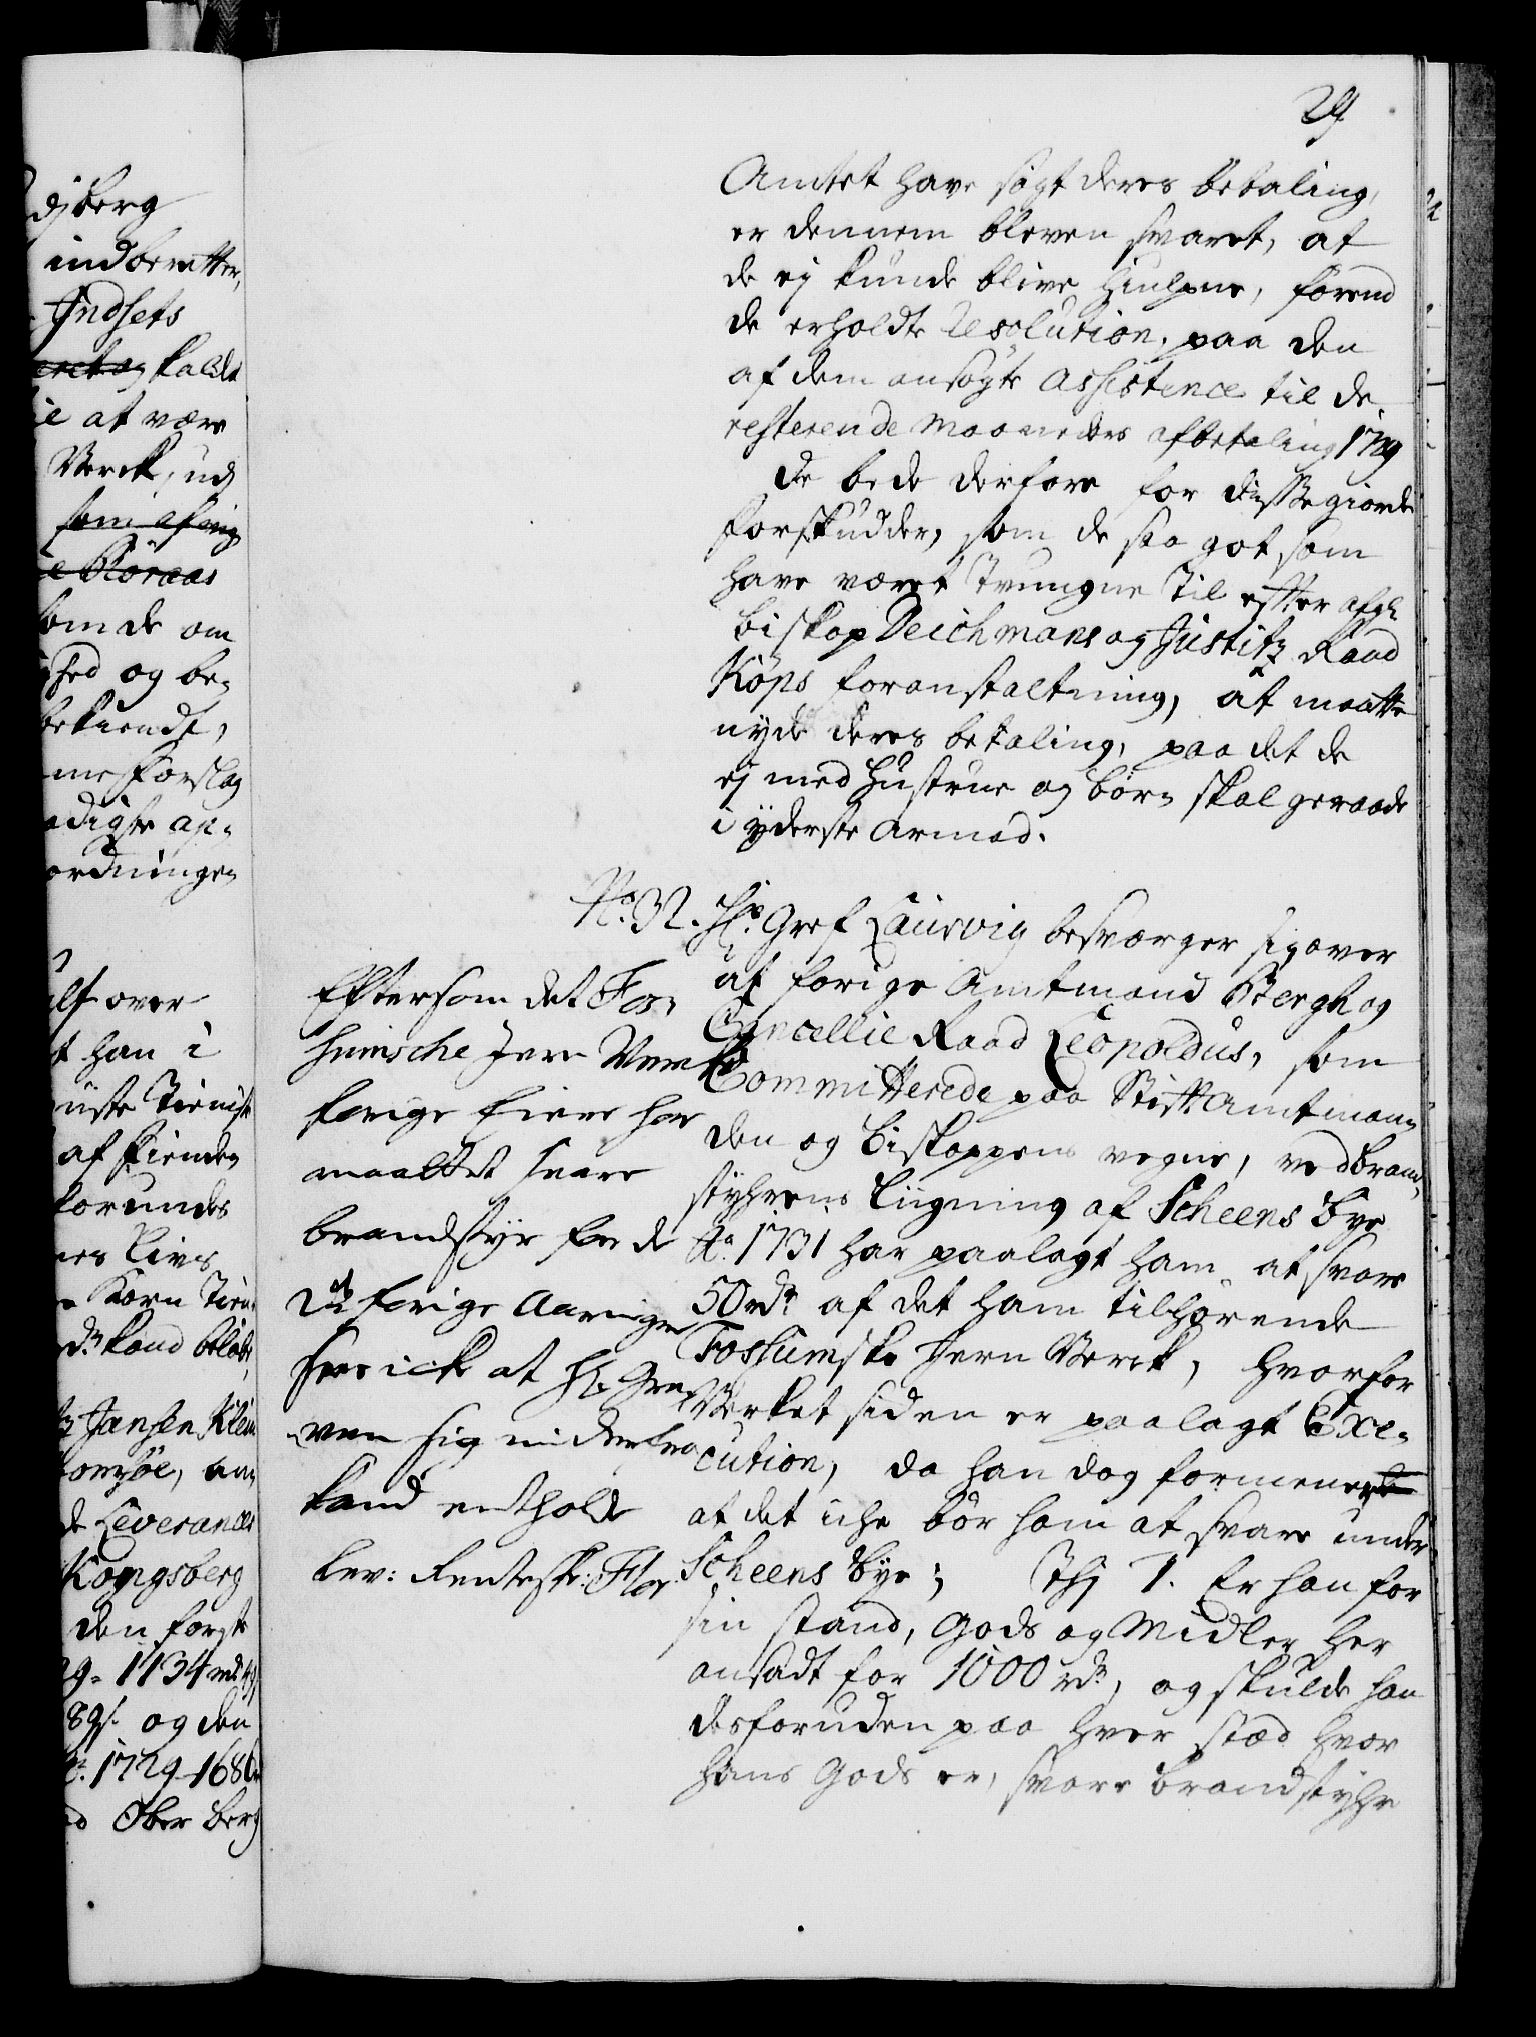 29
Amtet have søgt deres betaling,
er dennem bleven svaret, at
de ej kunde blive hiulpne, førend
de erholdte Resolution, paa den
af dem ansøgte Assistence til de
resterende Maaneders afbetaling 1729
De bede derfore for disse giorde
forskudder, som de saa got som
have været tvungne til efter afg:
Biskop Deichmans og Justitz Raad
Röps foranstaltning, at maatte
nyde deres betaling, paa det de
ej med Hustrue og børn skal geraade
i yderste Armod.
No. 32. Hr. Gref Laurvig besværger sig over
at forige Amtmand Bergh og
Cancellie Raad Leopoldus, som
Committerede paa Stiftamtman-
den og Biskoppens vegne, ved brand-
styhrens Ligning af Scheens Bye
Ao. 1731 har paalagt ham at svare
50 rdr. af det ham tilhørende
Fossumske Jern Verck, hvorfor
Verket siden er paalagt Exe-
cution, da han dog formener
at det iche bør ham at svare under
Scheens Bye; Thj 1. Er han for
sin stand, Gods og Midler her
ansadt for 1000 rdr., og skulde han
desforuden paa hver stæd hvor
hans Gods er, svare brandstyhr
Eftersom det Fos-
sumsche Jern Verck
forige Eiere har
maattet svare
brandstyr for de
forige Aaringer
sees icke at Hr. Gre-
ven sig nu derfra
kand entholde
Rev: Renteskr: Flor.
djberg
indberetter,
Indsets
kaldet
at være
Verck, ud
som
Röraas
som de om
hed og be-
bekiendt,
forslag
ap-
ordningen
over
han i
Tieniste
af fienden
Livs
Korn Tiende
kand beløbe
Jansen Klein
de Leverancer
Kongsberg
den første
1134
89 s. og den
1729 - 168
Ober berg